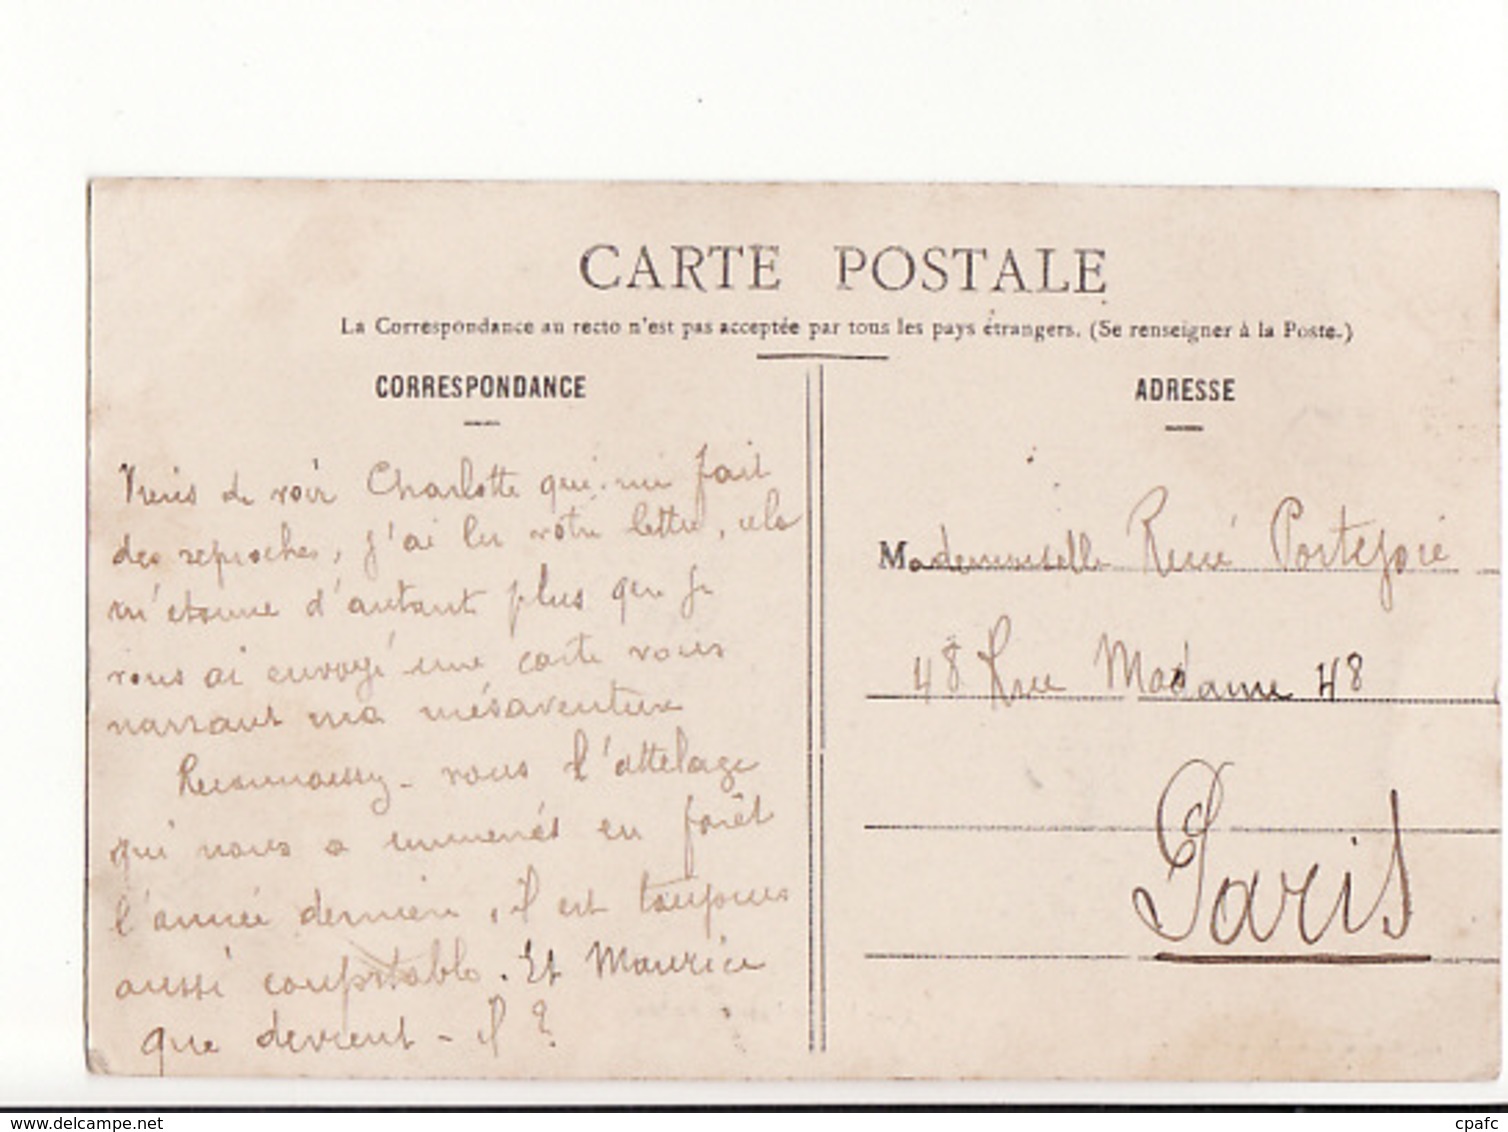 CARTE POSTALE
La Correspondance au recto n'est pas acceptée par tous les pays étrangers. (Se renseigner à la Poste.)
CORRESPONDANCE
Viens de voir Charlotte qui me fait
des reproches, j'ai lu votre lettre, cela
m'étonne d'autant plus que je
vous ai envoyé une carte vous
narrant ma mésaventure
Reconnaissez-vous l'attelage
qui nous a emmenés en forêt
l'année dernière, il est toujours
aussi confortable. Et Maurice
que devient-il ?
ADRESSE
Mademoiselle René Portejoie
48 Rue Madame 48
Paris
delcampe.net
cpafc